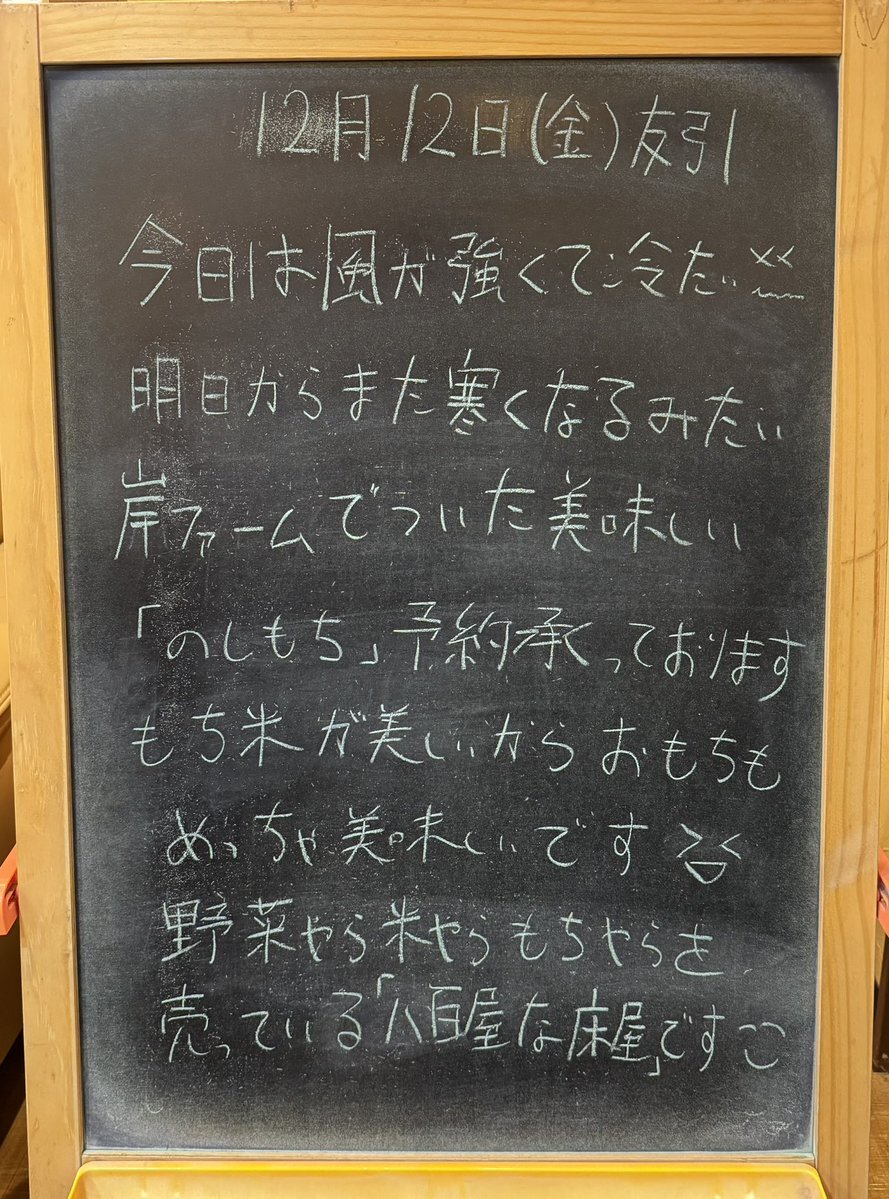 12月12日(金)友引
今日は風が強くて冷たい
明日からまた寒くなるみたい
岸ファームでついた美味しい
「のしもち」予約承っております
もち米が美しいから おもちも
めっちゃ美味しいです
野菜やら米やらもちやらを
売っている「八百屋な床屋」です